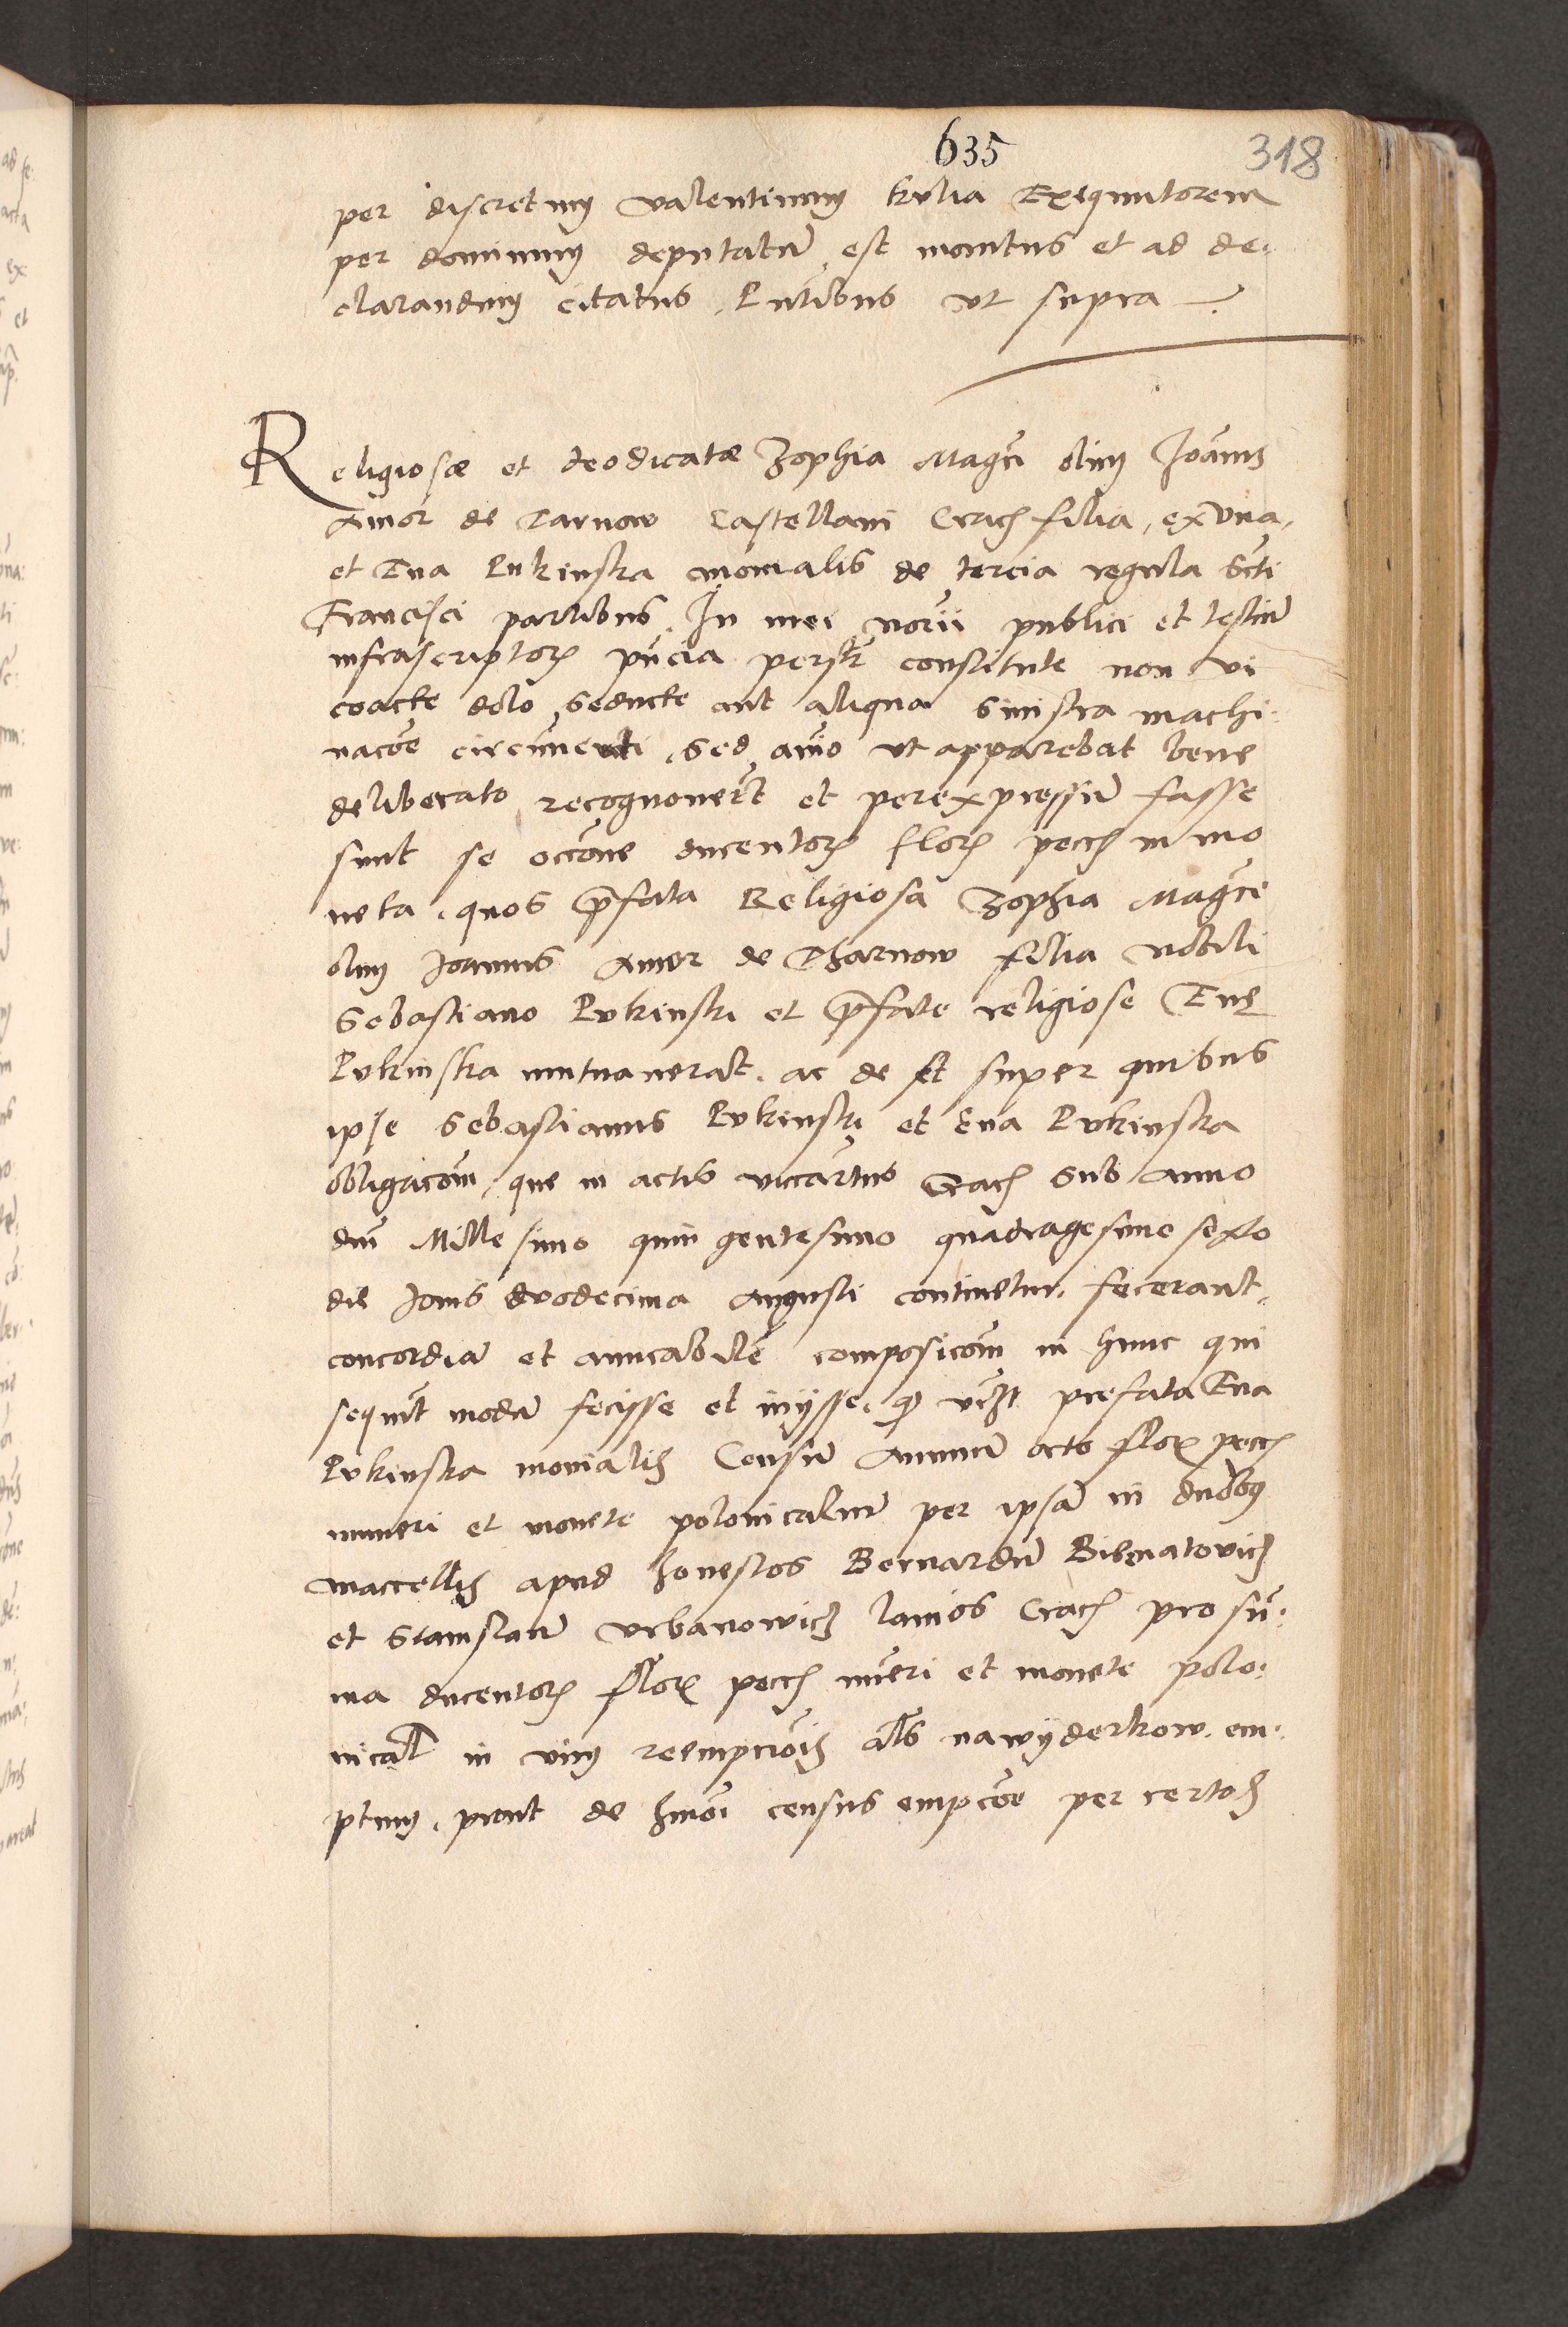 635
318
per discretum valentinum kulia Exequutorem
per dominum deputatũ est monitus et ad de:
clarandum citatus Pntibus ut supra
Religiosæ et deodicatæ Zophia Magci olim Joãnis
Amor de Tarnow Castellani Crach filia, ex una,
et Eua Pukinska monialis de tercia regula Scti
Francisci partibus. In mei norii publici et testiũ
infrascriptorz pñcia persltr constitute non vi
coacte dolo seducte aut aliqua sinistra machi:
nacõe circumuenti, sed aĩo ut apparebat bene
deliberato recognouerũt et per expressiũ fasse
sunt se occõne ducentorz florz pecch in mo
neta, quos p̃fata Religiosa Zophia Magci
olim Joannis Amor de Tharnow filia nobili
Sebastiano Pukinski et p̃fate religiose Eue
Pukinska mutuauerãt, ac de et super quibus
ipse Sebastianus Pukinski et Eua Pukinska
obligacõm, que in actis viccariatus Crach sub Anno
dni Millesimo quingentesimo quadragesimo sexto
die Jouis duodecima Augusti continetur, fecerant,
concordiã et amicabilẽ composicõm in hunc qui
sequit modũ fecisse et inysse, qp vczt prefata Eua
Pukinska monialis Censũ Annuũ octo florz pecch
numeri et monete polonicaliũ per ipsã in duobus
maccellis apud honestos Bernardũ Bibenatovicz
et Stanislaũ Vrbanowicz lanios Crach pro sũ:
ma ducentorz florz pecch nũeri et monete polo:
nical in vim reempcõis als nawyderkow em:
ptum, prout de hmõi census empcõe per certos